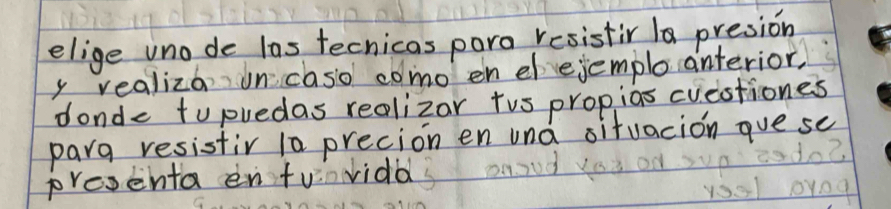 elige uno de las tecnicas para resistir la presión
y realiza un caso como en el ejemplo anterior,
donde tu puedas realizar tus propias cuestiones
para resistir la preción en una situación que se
presenta en tu vida